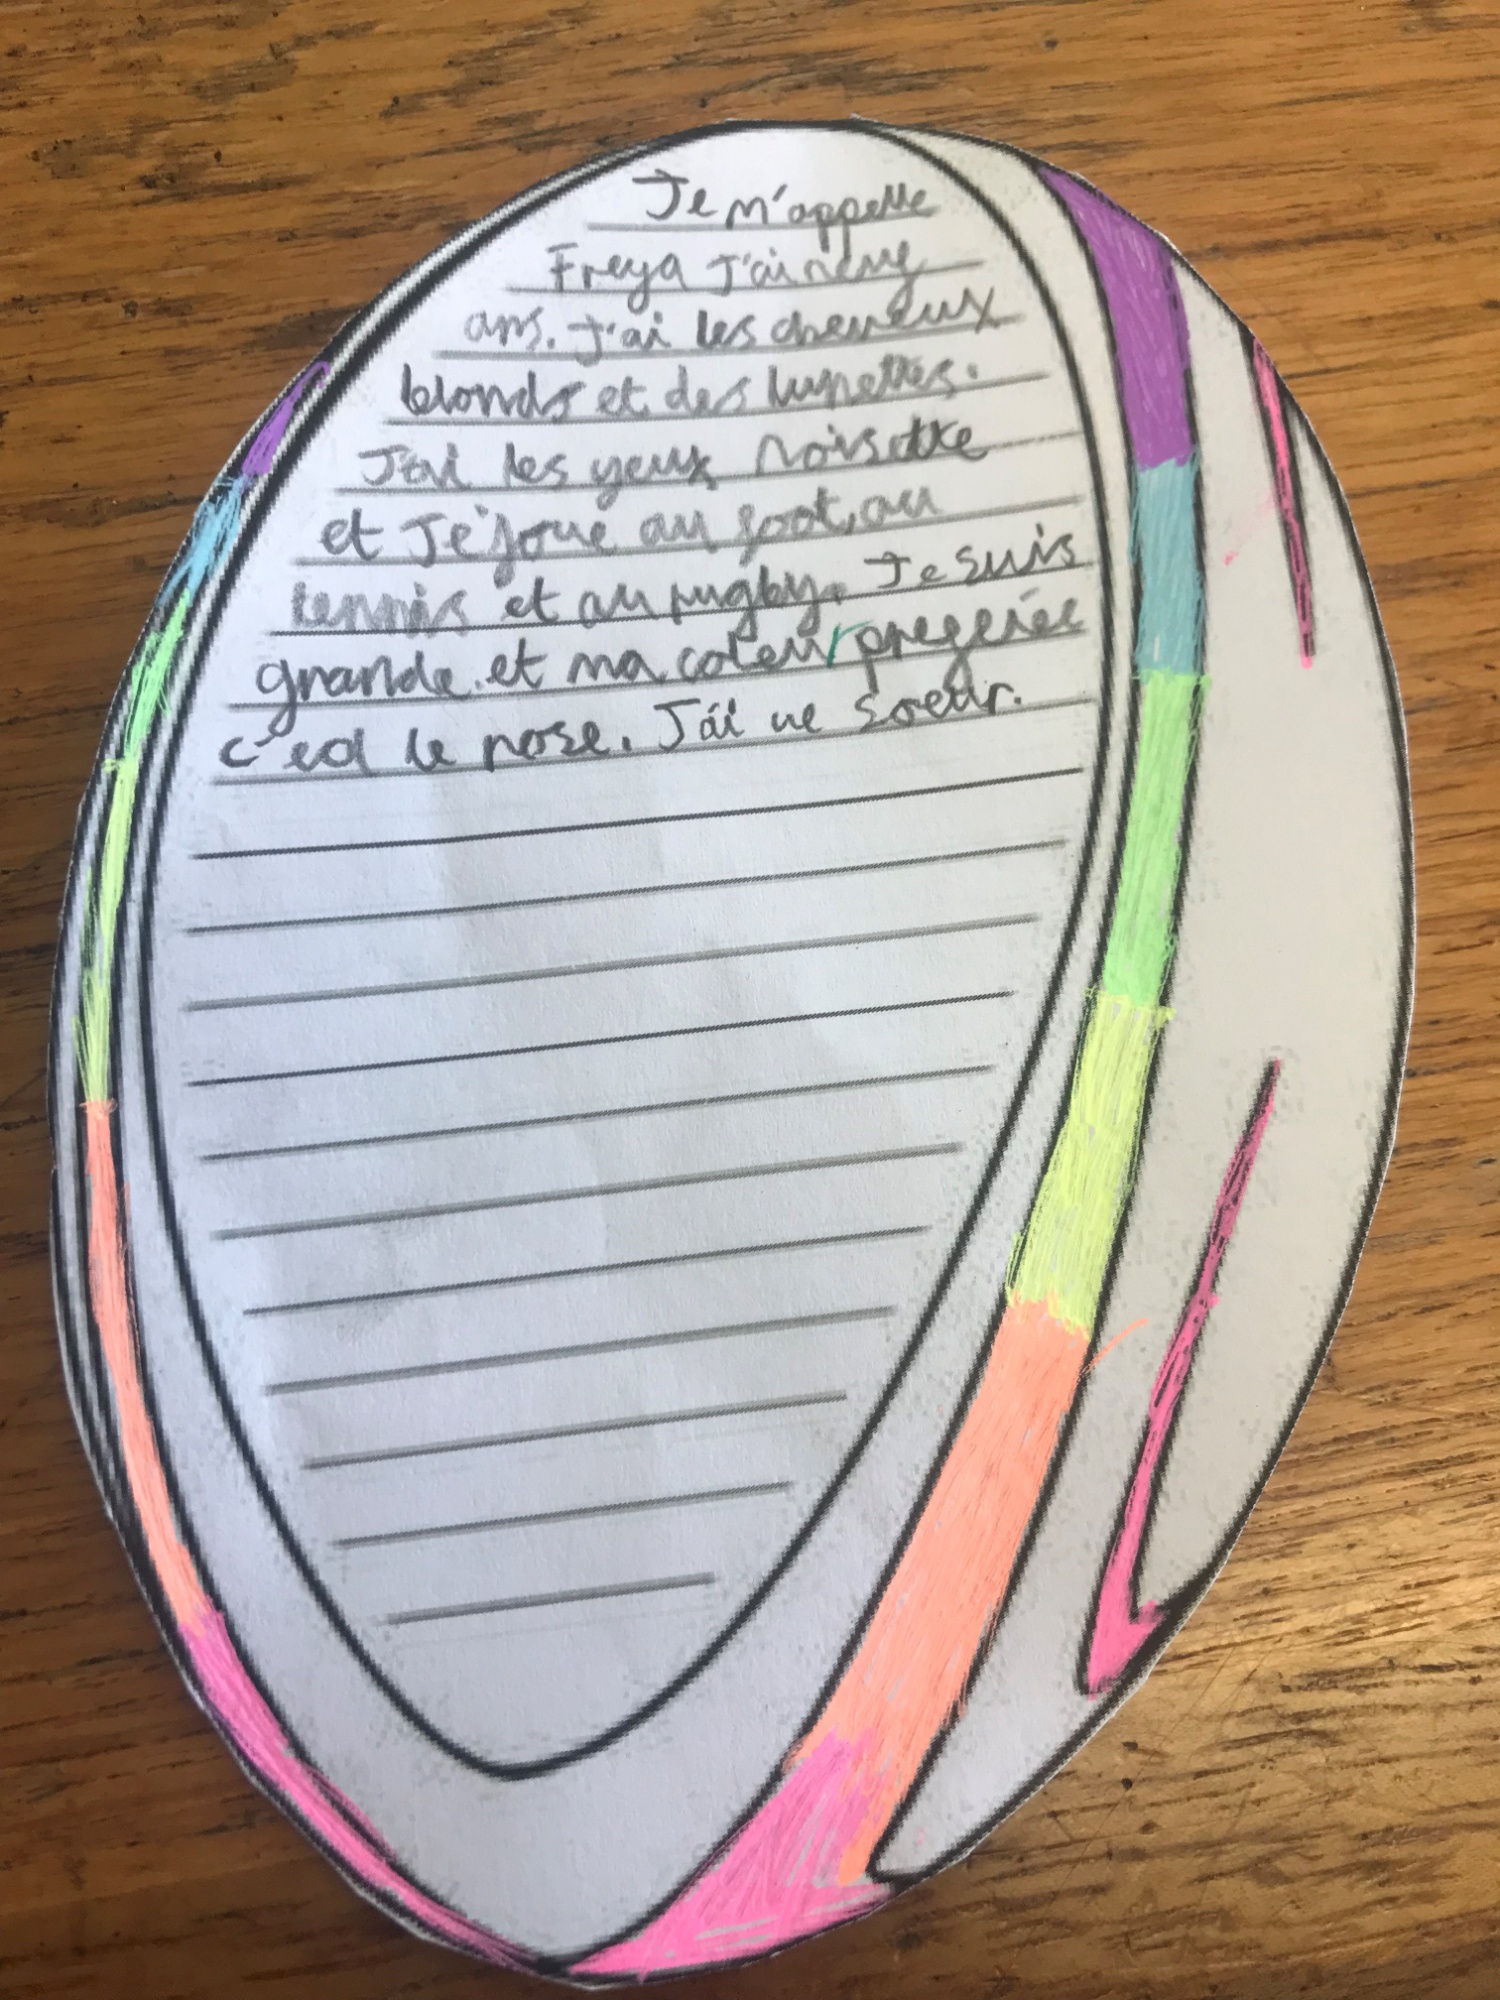 Je m'appelle
Freya J'ai neuf
ans. J'ai les cheveux
blonds et des lunettes.
J'ai les yeux noisette
et Je joue au foot, au
tennis et au rugby. Je suis
grande. et ma coleur preferée
c'est le rose. J'ai ue soeur.